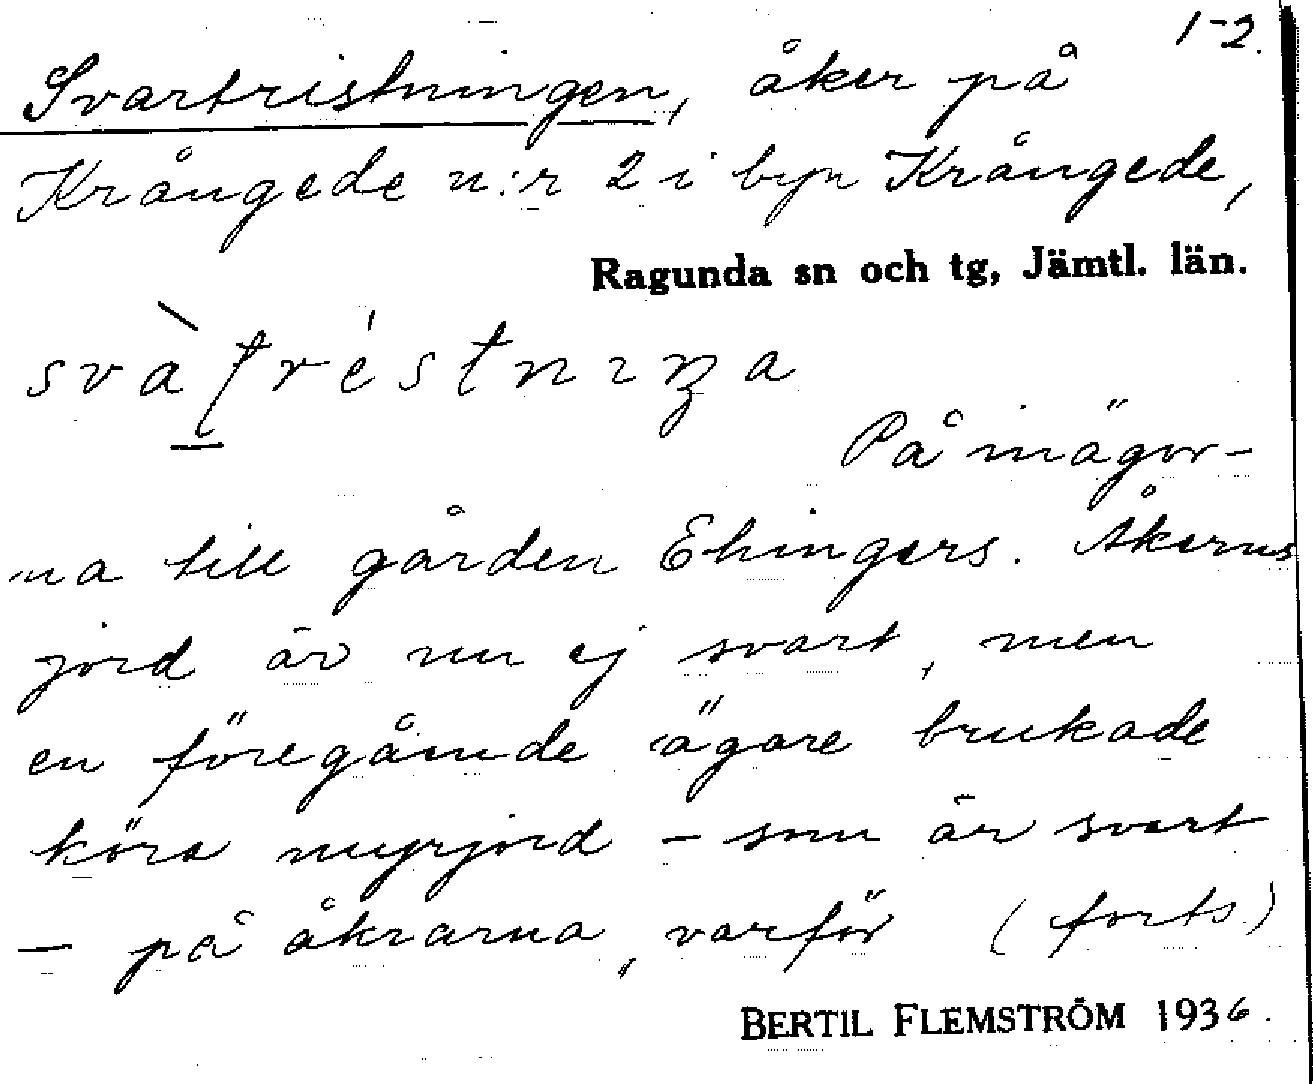 1-2.
Svartristningen, åker på
Krångede n:r 2 i byn Krångede,
Ragunda sn och tg, Jämtl. län.
På inägor-
na till gården Ehingers. Åkerns
jord är nu ej svart, men
en föregående ägare brukade
köra myrjord - som är svart
- på åkrarna, varför (forts.)
BERTIL FLEMSTRÖM 1936.